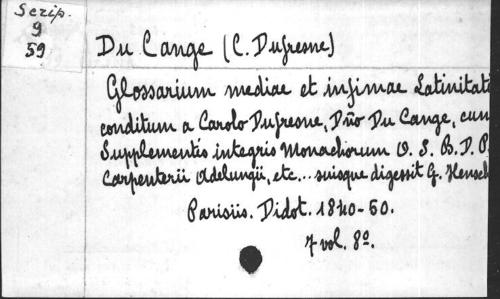 Scrip.
9
59
Du Cange (C. Dufresne)
Glossarium mediae et infimae Latinitati
conditum a Carolo Dufresne, Dño Du Cange, cum
Supplementis integris Monachorum O. S. B. D. P.
Carpenterii Adelungii, etc... suisque digessit G. Hensch
Parisiis. Didot. 1840-50.
7 vol. 8º.